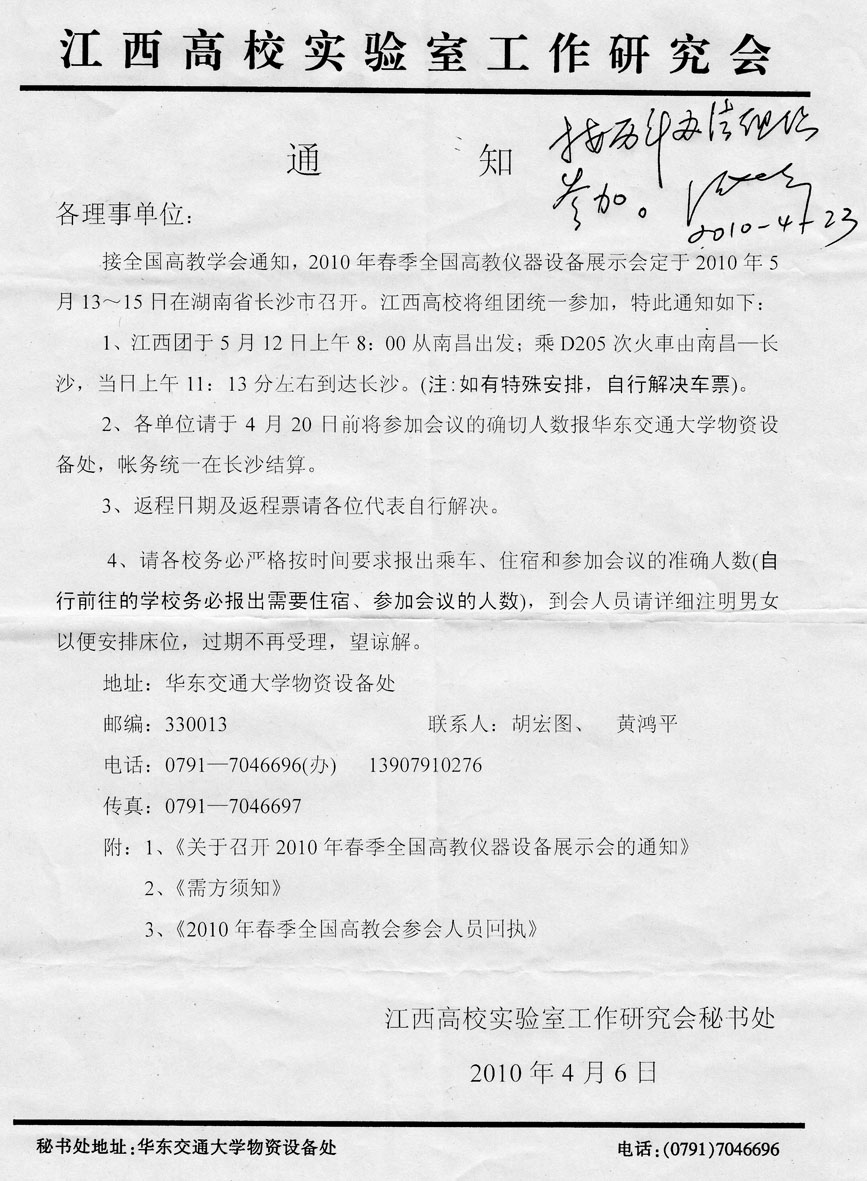 江西高校实验室工作研究会
按历年办法组织
参加。
2010-4-23
通 知
各理事单位：
接全国高教学会通知，2010 年春季全国高教仪器设备展示会定于 2010 年 5
月 13～15 日在湖南省长沙市召开。江西高校将组团统一参加，特此通知如下：
1、江西团于 5 月 12 日上午 8：00 从南昌出发；乘 D205 次火車由南昌—长
沙，当日上午 11：13 分左右到达长沙。(注:如有特殊安排，自行解决车票)。
2、各单位请于 4 月 20 日前将参加会议的确切人数报华东交通大学物资设
备处，帐务统一在长沙结算。
3、返程日期及返程票请各位代表自行解决。
4、请各校务必严格按时间要求报出乘车、住宿和参加会议的准确人数(自
行前往的学校务必报出需要住宿、参加会议的人数)，到会人员请详细注明男女
以便安排床位，过期不再受理，望谅解。
地址：华东交通大学物资设备处
邮编：330013 联系人：胡宏图、 黄鸿平
电话：0791—7046696(办) 13907910276
传真：0791—7046697
附：1、《关于召开 2010 年春季全国高教仪器设备展示会的通知》
2、《需方须知》
3、《2010 年春季全国高教会参会人员回执》
江西高校实验室工作研究会秘书处
2010 年 4 月 6 日
秘书处地址:华东交通大学物资设备处 电话:(0791)7046696